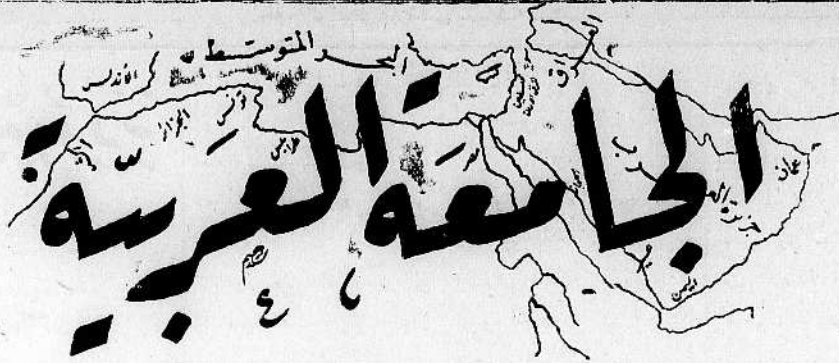 الجامعة العربيّة
البحر المتوسط
الأندلس
تونس
الجزائر
طرابلس
مصر
العراق
عمان
جزيرة العرب
اليمن